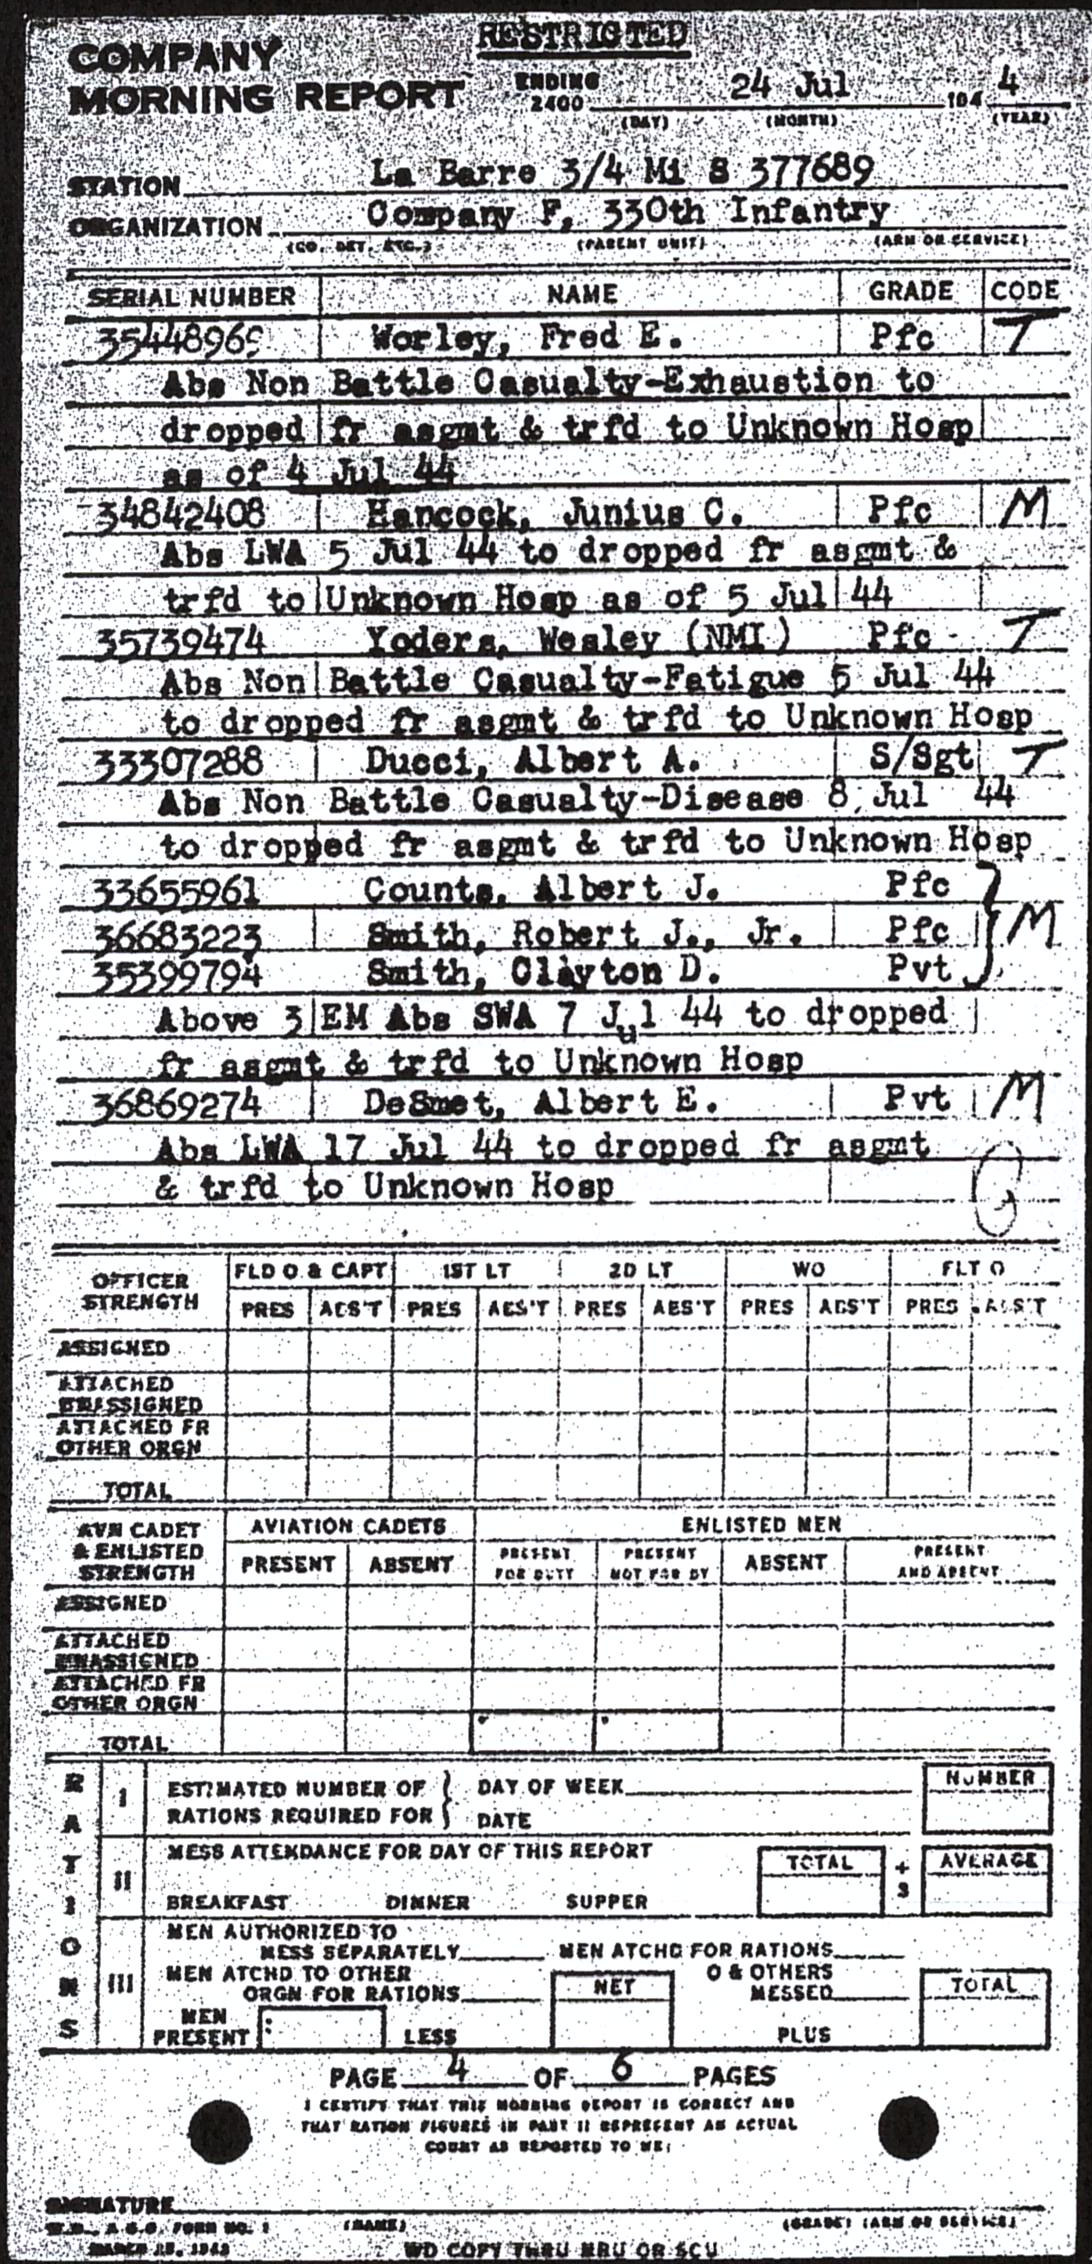 RESTRICTED
COMPANY
MORNING REPORT
ENDING
2400
24 Jul 194 4
(DAY) (MONTH) (YEAR)
STATION La Barre 3/4 Mi S 377689
ORGANIZATION Company F, 330th Infantry
(CO. DET. ETC.) (PARENT UNIT) (ARM OR SERVICE)
SERIAL NUMBER NAME GRADE CODE
35448969 Worley, Fred E. Pfc T
Abs Non Battle Casualty-Exhaustion to
dropped fr asgmt & trfd to Unknown Hosp
as of 4 Jul 44
34842408 Hancock, Junius C. Pfc M
Abs LWA 5 Jul 44 to dropped fr asgmt &
trfd to Unknown Hosp as of 5 Jul 44
35739474 Yoders, Wesley (NMI) Pfc T
Abs Non Battle Casualty-Fatigue 5 Jul 44
to dropped fr asgmt & trfd to Unknown Hosp
33307288 Ducci, Albert A. S/Sgt T
Abs Non Battle Casualty-Disease 8 Jul 44
to dropped fr asgmt & trfd to Unknown Hosp
33655961 Counts, Albert J. Pfc
36683223 Smith, Robert J., Jr. Pfc M
35399794 Smith, Clayton D. Pvt
Above 3 EM Abs SWA 7 Jul 44 to dropped
fr asgmt & trfd to Unknown Hosp
36869274 DeSmet, Albert E. Pvt M
Abs LWA 17 Jul 44 to dropped fr asgmt
& trfd to Unknown Hosp
OFFICER STRENGTH FLD O & CAPT 1ST LT 2D LT WO FLT O
PRES ABS'T PRES ABS'T PRES ABS'T PRES ABS'T PRES ABS'T
ASSIGNED
ATTACHED
UNASSIGNED
ATTACHED FR
OTHER ORGN
TOTAL
AVN CADET
& ENLISTED
STRENGTH
AVIATION CADETS ENLISTED MEN
PRESENT ABSENT PRESENT FOR DUTY PRESENT NOT FOR DY ABSENT PRESENT AND ABSENT
ASSIGNED
ATTACHED
UNASSIGNED
ATTACHED FR
OTHER ORGN
TOTAL
RATIONS
I ESTIMATED NUMBER OF DAY OF WEEK NUMBER
RATIONS REQUIRED FOR DATE
II MESS ATTENDANCE FOR DAY OF THIS REPORT TOTAL ÷ 3 AVERAGE
BREAKFAST DINNER SUPPER
III MEN AUTHORIZED TO
MESS SEPARATELY MEN ATCHD FOR RATIONS
MEN ATCHD TO OTHER O & OTHERS
ORGN FOR RATIONS NET MESSED TOTAL
MEN
PRESENT LESS PLUS
PAGE 4 OF 6 PAGES
I CERTIFY THAT THIS MORNING REPORT IS CORRECT AND
THAT RATION FIGURES IN PART II REPRESENT AN ACTUAL
COUNT AS REPORTED TO ME:
SIGNATURE
(NAME) (GRADE) (ARM OR SERVICE)
W.D., A.G.O. FORM NO. 1
WD COPY THRU MRU OR SCU